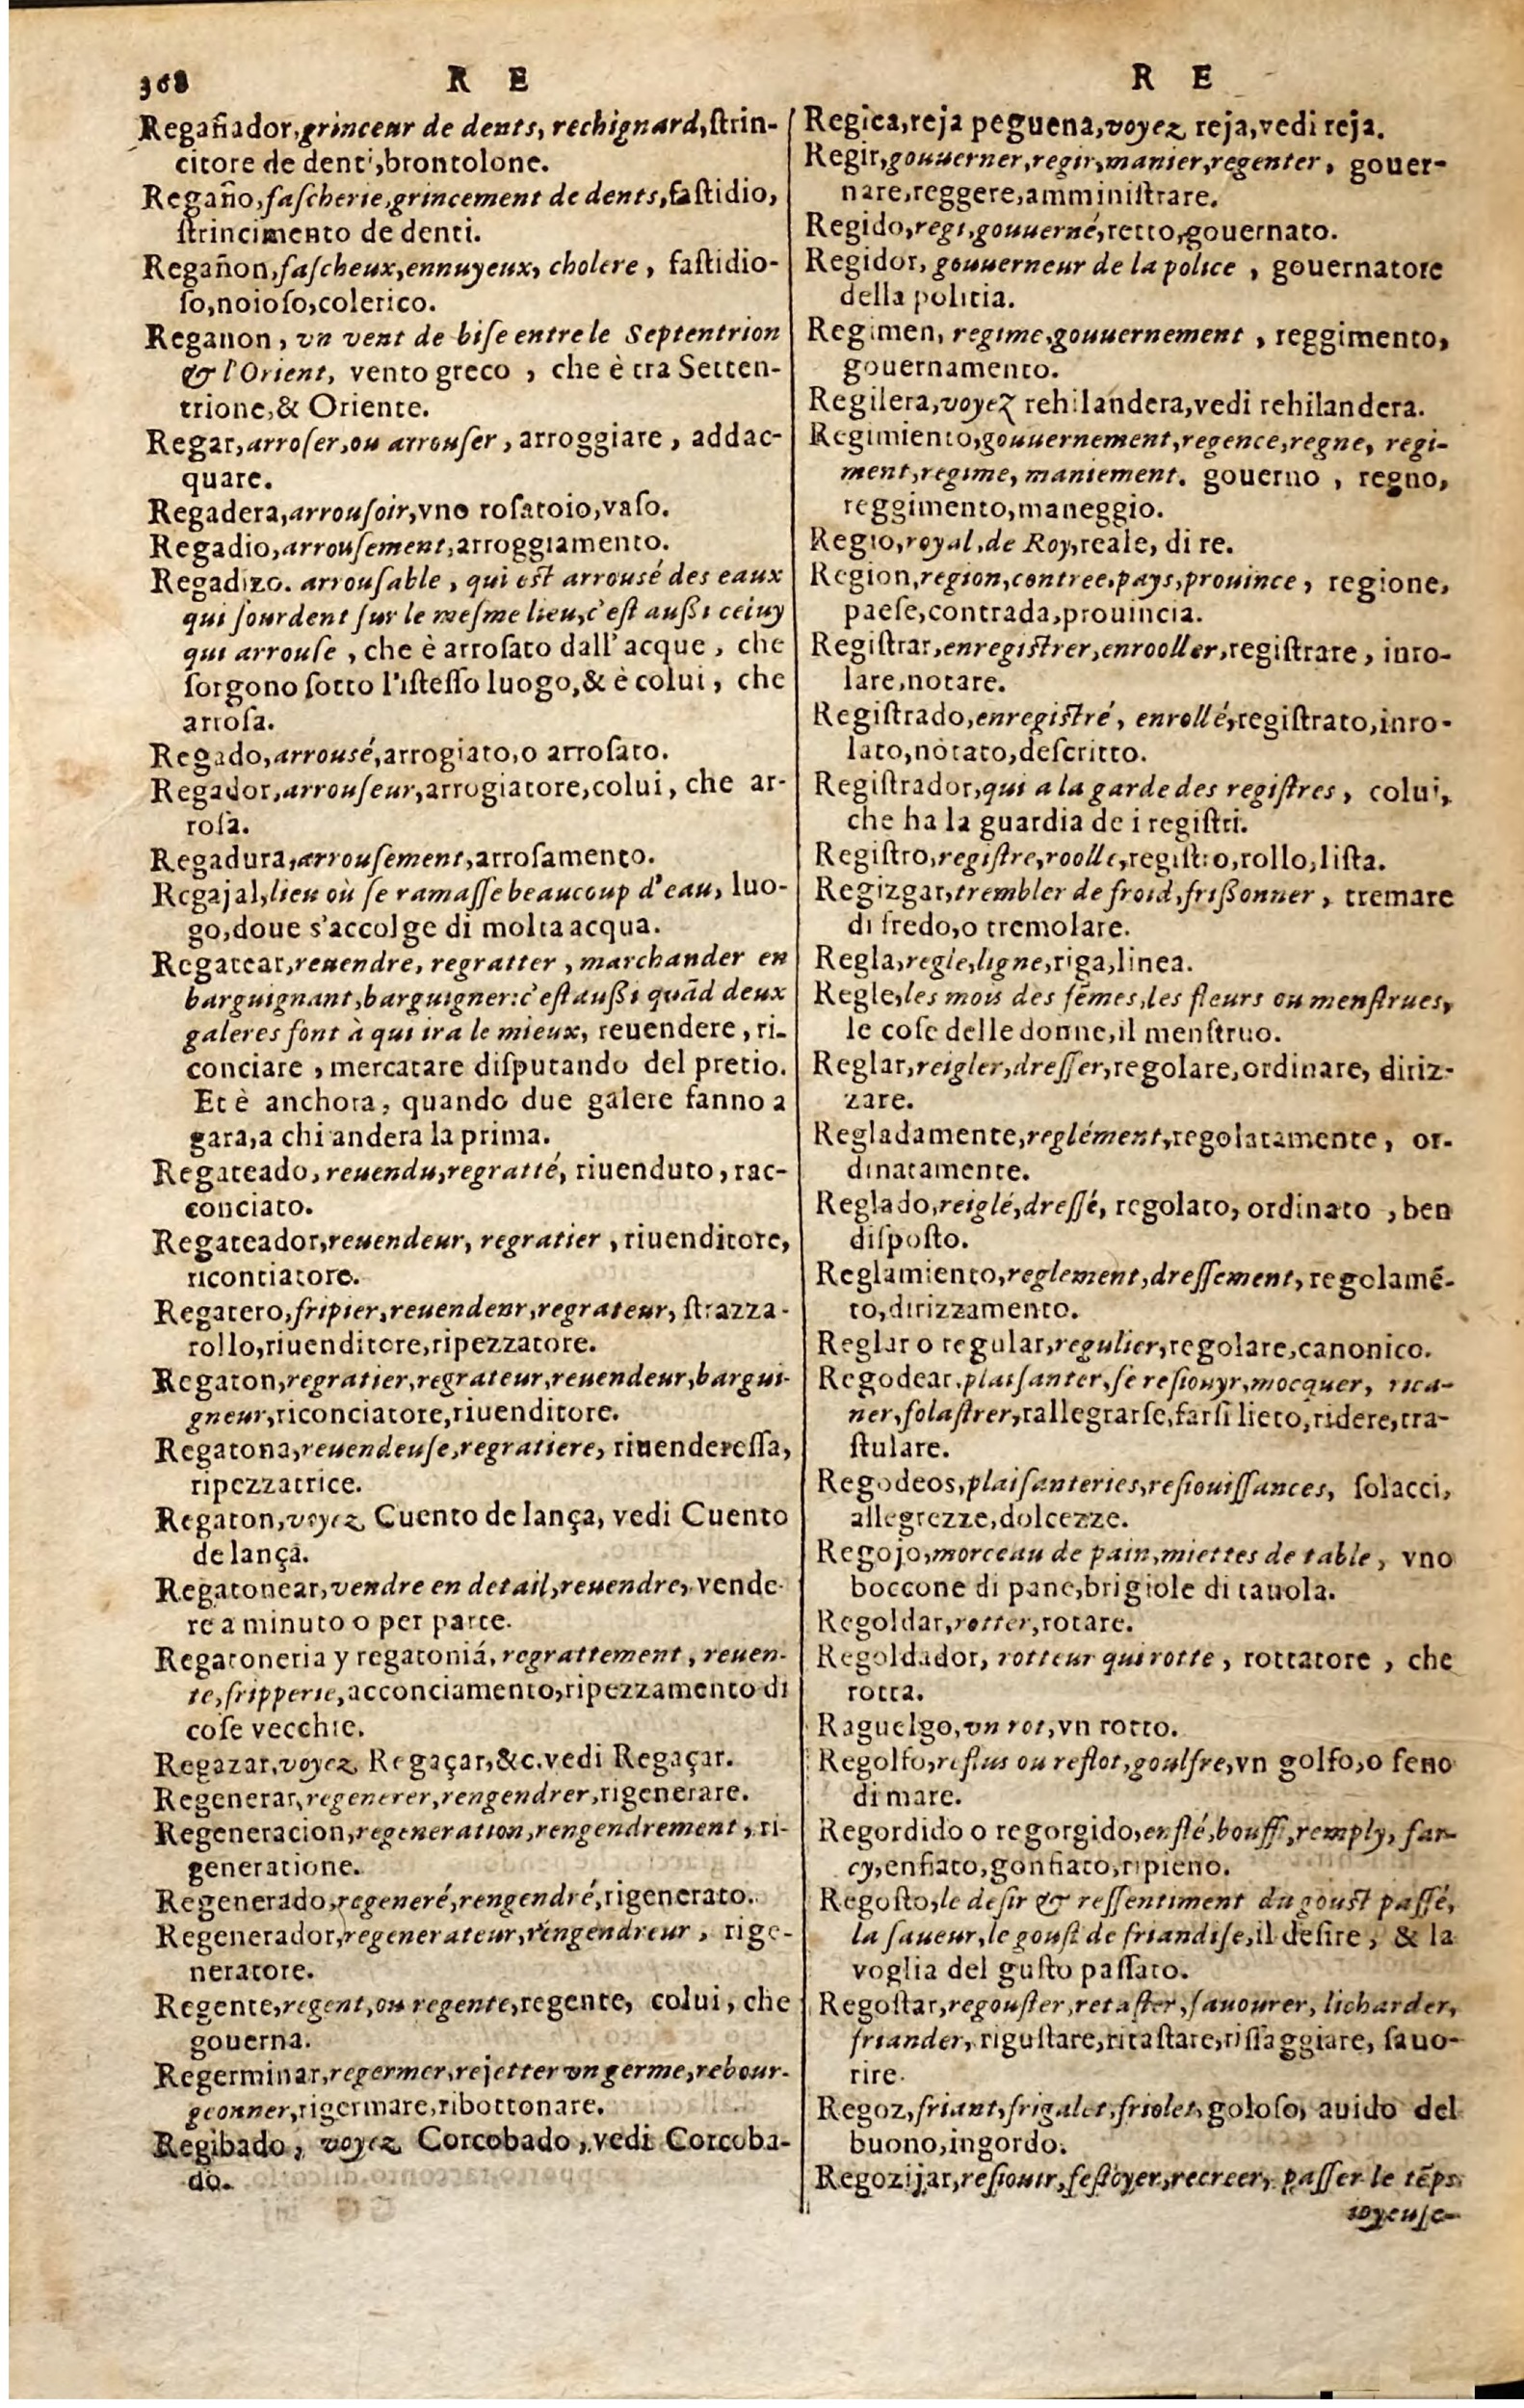 368 R E
Regañador, grinceur de dents, rechignard, ſtrin-
citore de denti, brontolone.
Regaño, faſcherie, grincement de dents, faſtidio,
ſtrincimento de denti.
Regañon, faſcheux, ennuyeux, cholere, faſtidio-
ſo, noioſo, colerico.
Reganon, vn vent de biſe entre le Septentrion
& l'Orient, vento greco, che è tra Setten-
trione, & Oriente.
Regar, arroſer, ou arrouſer, arroggiare, addac-
quare.
Regadera, arrouſoir, vno roſatoio, vaſo.
Regadio, arrouſement, arroggiamento.
Regadizo. arrouſable, qui est arrousé des eaux
qui ſourdent ſur le meſme lieu, c'eſt außi celuy
qui arrouſe, che è arroſato dall'acque, che
ſorgono ſotto l'iſteſſo luogo, & è colui, che
arroſa.
Regado, arrousé, arrogiato, o arroſato.
Regador, arrouſeur, arrogiatore, colui, che ar-
roſa.
Regadura, arrouſement, arroſamento.
Regajal, lieu où ſe ramaſſe beaucoup d'eau, luo-
go, doue s'accolge di molta acqua.
Regatear, reuendre, regratter, marchander en
barguignant, barguigner: c'eſt außi quãd deux
galeres font à qui ira le mieux, reuendere, ri-
conciare, mercatare diſputando del pretio.
Et è anchora, quando due galere fanno a
gara, a chi andera la prima.
Regateado, reuendu, regratté, riuenduto, rac-
conciato.
Regateador, reuendeur, regratier, riuenditore,
ricontiatore.
Regatero, fripier, reuendeur, regrateur, ſtrazza-
rollo, riuenditore, ripezzatore.
Regaton, regratier, regrateur, reuendeur, bargui-
gneur, riconciatore, riuenditore.
Regatona, reuendeuſe, regratiere, riuendereſſa,
ripezzatrice.
Regaton, voyez Cuento de lança, vedi Cuento
de lança.
Regatonear, vendre en detail, reuendre, vende-
re a minuto o per parte.
Regatoneria y regatoniá, regrattement, reuen-
te, fripperie, acconciamento, ripezzamento di
coſe vecchie.
Regazar, voyez Regaçar, &c. vedi Regaçar.
Regenerar, regenerer, rengendrer, rigenerare.
Regeneracion, regeneration, rengendrement, ri-
generatione.
Regenerado, regeneré, rengendré, rigenerato.
Regenerador, regenerateur, rengendreur, rige-
neratore.
Regente, regent, ou regente, regente, colui, che
gouerna.
Regerminar, regermer, rejetter vn germe, rebour-
geonner, rigermare, ribottonare.
Regibado, voyez Corcobado, vedi Corcoba-
do.
R E
Regica, reja peguena, voyez reja, vedi reja.
Regir, gouuerner, regir, manier, regenter, gouer-
nare, reggere, amminiſtrare.
Regido, regi, gouuerné, retto, gouernato.
Regidor, gouuerneur de la police, gouernatore
della politia.
Regimen, regime, gouuernement, reggimento,
gouernamento.
Regilera, voyez rehilandera, vedi rehilandera.
Regimiento, gouuernement, regence, regne, regi-
ment, regime, maniement. gouerno, regno,
reggimento, maneggio.
Regio, royal, de Roy, reale, di re.
Region, region, contree, pays, prouince, regione,
paeſe, contrada, prouincia.
Regiſtrar, enregiſtrer, enrooller, regiſtrare, inro-
lare, notare.
Regiſtrado, enregiſtré, enrollé, regiſtrato, inro-
lato, notato, deſcritto.
Regiſtrador, qui a la garde des regiſtres, colui,
che ha la guardia de i regiſtri.
Regiſtro, regiſtre, roolle, regiſtro, rollo, liſta.
Regizgar, trembler de froid, frißonner, tremare
di fredo, o tremolare.
Regla, regle, ligne, riga, linea.
Regle, les mois des fẽmes, les fleurs ou menſtrues,
le coſe delle donne, il menſtruo.
Reglar, reigler, dreſſer, regolare, ordinare, diriz-
zare.
Regladamente, reglément, regolatamente, or-
dinatamente.
Reglado, reiglé, dreſſé, regolato, ordinato, ben
diſpoſto.
Reglamiento, reglement, dreſſement, regolamẽ-
to, dirizzamento.
Reglar o regular, regulier, regolare, canonico.
Regodear. plaiſanter, ſe reſiouyr, mocquer, rica-
ner, folaſtrer, rallegrarſe, farſi lieto, ridere, tra-
ſtulare.
Regodeos, plaiſanteries, reſiouiſſances, ſolacci,
allegrezze, dolcezze.
Regojo, morceau de pain, miettes de table, vno
boccone di pane, brigiole di tauola.
Regoldar, rotter, rotare.
Regoldador, rotteur qui rotte, rottatore, che
rotta.
Raguelgo, vn rot, vn rotto.
Regolfo, reflus ou reflot, goulfre, vn golfo, o ſeno
di mare.
Regordido o regorgido, enflé, bouffi, remply, far-
cy, enfiato, gonfiato, ripieno.
Regoſto, le deſir & reſſentiment du gouſt paſſé,
la ſaueur, le gouſt de friandiſe, il deſire, & la
voglia del guſto paſſato.
Regoſtar, regouſter, retaſter, ſauourer, licharder,
friander, riguſtare, ritaſtare, riſſaggiare, ſauo-
rire.
Regoz, friant, frigalet, friolet, goloſo, auido del
buono, ingordo.
Regozijar, reſiouir, feſtoyer, recreer, paſſer le tẽps
ioyeuſe-